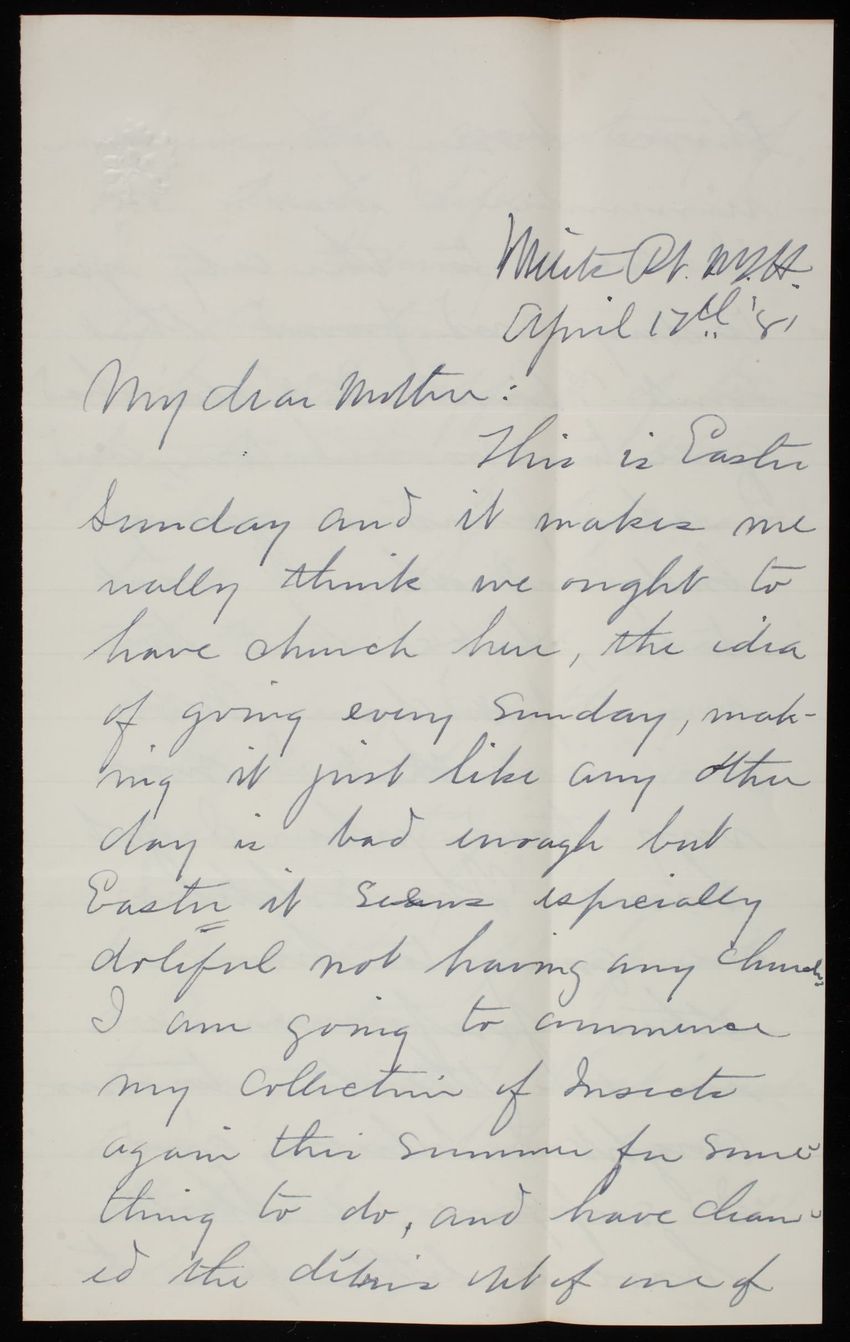 Willets Pt. N.Y.H.
April 17th '81
My dear Mother:
This is Easter
Sunday and it makes me
really think we ought to
have church here, the idea
of going every Sunday, mak-
ing it just like any other
day is bad enough but
Easter it seems especially
doleful not having any church,
I am going to commence
my collection of Insects
again this summer for some-
thing to do, and have clean-
ed the débris out of one of